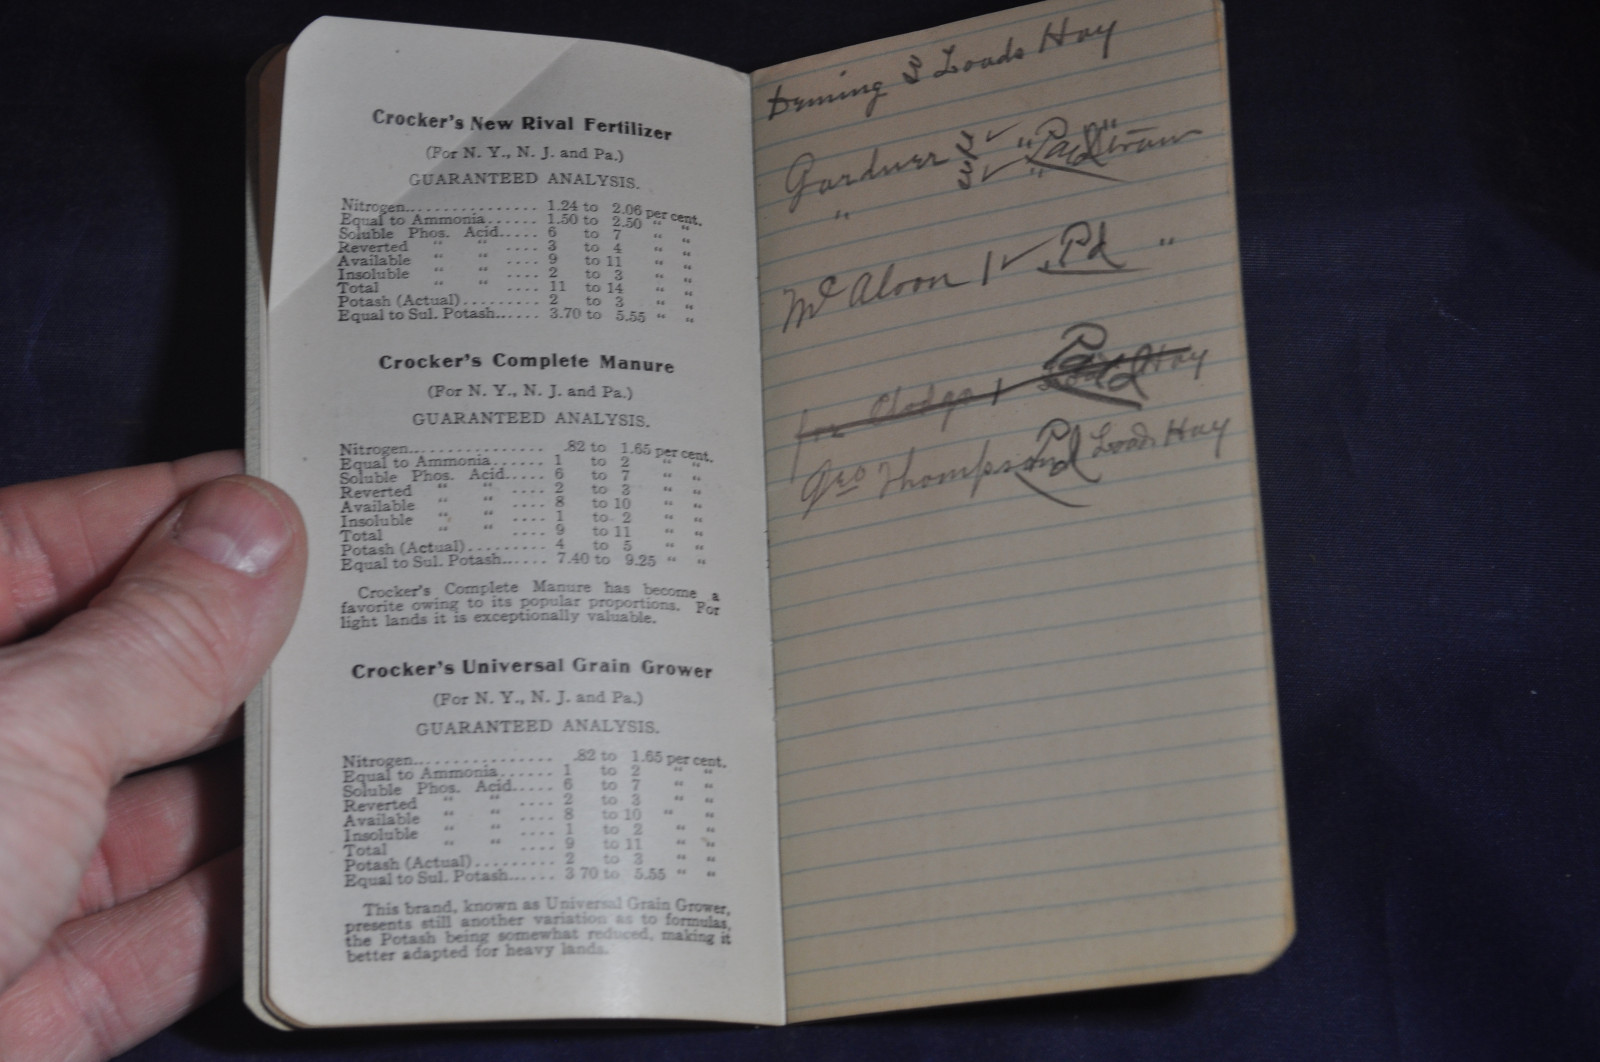 Crocker's New Rival Fertilizer
(For N. Y., N. J. and Pa.)
GUARANTEED ANALYSIS.
Nitrogen............... 1.24 to 2.06 per cent.
Equal to Ammonia...... 1.50 to 2.50 " "
Soluble Phos. Acid..... 6 to 7 " "
Reverted " " .... 3 to 4 " "
Available " " .... 9 to 11 " "
Insoluble " " .... 2 to 3 " "
Total " " .... 11 to 14 " "
Potash (Actual)......... 2 to 3 " "
Equal to Sul. Potash...... 3.70 to 5.55 " "
Crocker's Complete Manure
(For N. Y., N. J. and Pa.)
GUARANTEED ANALYSIS.
Nitrogen............... .82 to 1.65 per cent.
Equal to Ammonia...... 1 to 2 " "
Soluble Phos. Acid..... 6 to 7 " "
Reverted " " .... 2 to 3 " "
Available " " .... 8 to 10 " "
Insoluble " " .... 1 to 2 " "
Total " " .... 9 to 11 " "
Potash (Actual)......... 4 to 5 " "
Equal to Sul. Potash...... 7.40 to 9.25 " "
Crocker's Complete Manure has become a
favorite owing to its popular proportions. For
light lands it is exceptionally valuable.
Crocker's Universal Grain Grower
(For N. Y., N. J. and Pa.)
GUARANTEED ANALYSIS.
Nitrogen............... .82 to 1.65 per cent.
Equal to Ammonia...... 1 to 2 " "
Soluble Phos. Acid..... 6 to 7 " "
Reverted " " .... 2 to 3 " "
Available " " .... 8 to 10 " "
Insoluble " " .... 1 to 2 " "
Total " " .... 9 to 11 " "
Potash (Actual)......... 2 to 3 " "
Equal to Sul. Potash...... 3 70 to 5.55 " "
This brand, known as Universal Grain Grower,
presents still another variation as to formulas,
the Potash being somewhat reduced, making it
better adapted for heavy lands.
Deming 3 Loads Hay
Gardner 3 ✓ " Paid " Straw
" 3 ✓ "
Mc Aloon 1 ✓ Pd "
1 Paid Hay
Geo Thompson Pd Load Hay